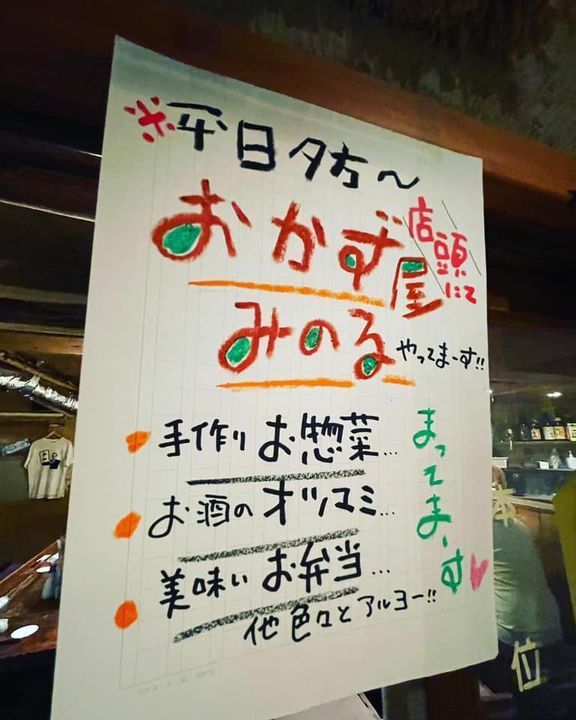 ※平日夕方〜
おかず屋
店頭にて
みのる
やってまーす!!
手作り お惣菜...
お酒の オツマミ...
美味い お弁当...
他 色々と アルヨー!!
まってまーす♥
位